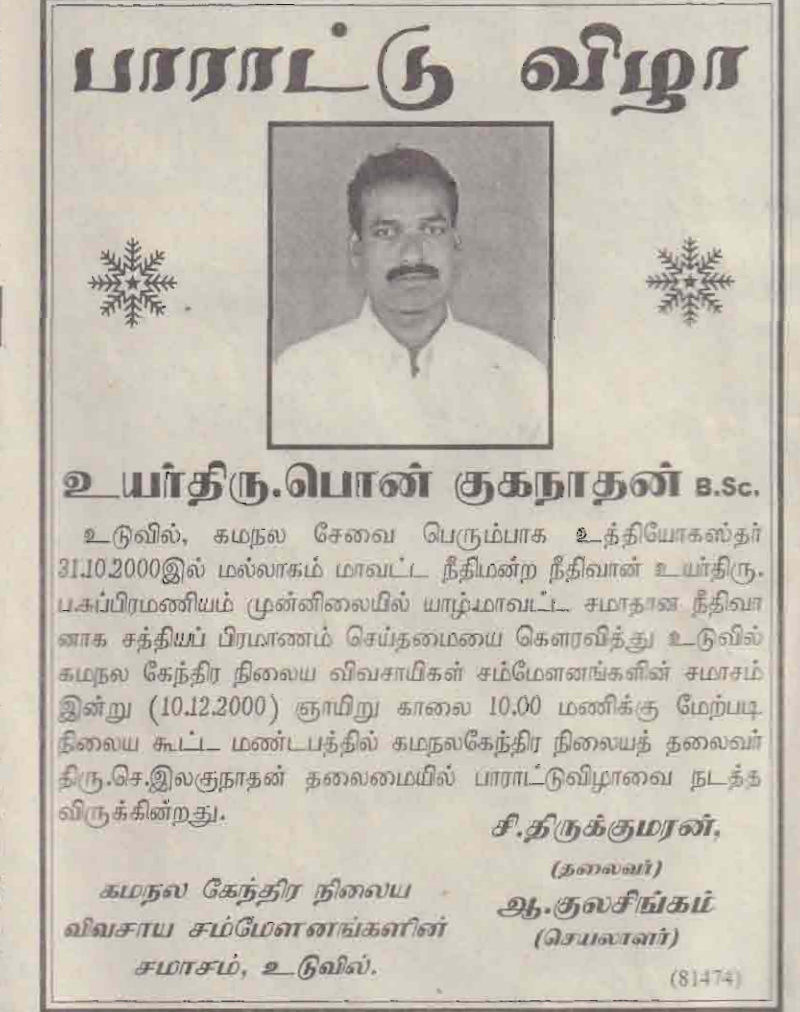 பாராட்டு விழா
உயர்திரு.பொன் குகநாதன் B.Sc.
உடுவில், கமநல சேவை பெரும்பாக உத்தியோகஸ்தர்
31.10.2000இல் மல்லாகம் மாவட்ட நீதிமன்ற நீதிவான் உயர்திரு.
ப.சுப்பிரமணியம் முன்னிலையில் யாழ்.மாவட்ட சமாதான நீதிவா
னாக சத்தியப் பிரமாணம் செய்தமையை கௌரவித்து உடுவில்
கமநல கேந்திர நிலைய விவசாயிகள் சம்மேளனங்களின் சமாசம்
இன்று (10.12.2000) ஞாயிறு காலை 10.00 மணிக்கு மேற்படி
நிலைய கூட்ட மண்டபத்தில் கமநலகேந்திர நிலையத் தலைவர்
திரு.செ.இலகுநாதன் தலைமையில் பாராட்டுவிழாவை நடத்த
விருக்கின்றது.
சி.திருக்குமரன்,
(தலைவர்)
ஆ.குலசிங்கம்
(செயலாளர்)
கமநல கேந்திர நிலைய
விவசாய சம்மேளனங்களின்
சமாசம், உடுவில்.
(81474)